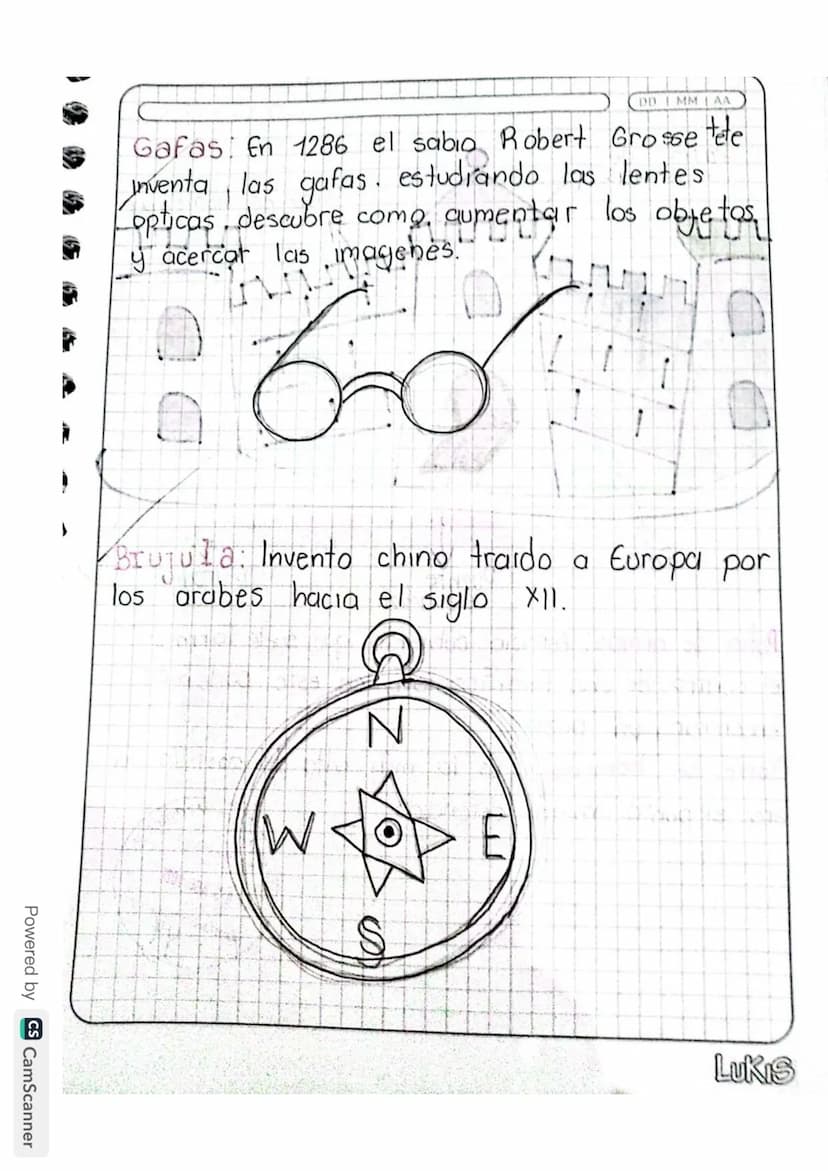 DD | MM | AA
Gafas: En 1286 el sabio Robert Grosse tete
inventa las gafas. estudiando las lentes
opticas, descubre como aumentar los objetos
y acercar las imagenes.
Brujula: Invento chino traido a Europa por
los arabes hacia el siglo XII.
N
W E
S
LUKIS
Powered by CS CamScanner